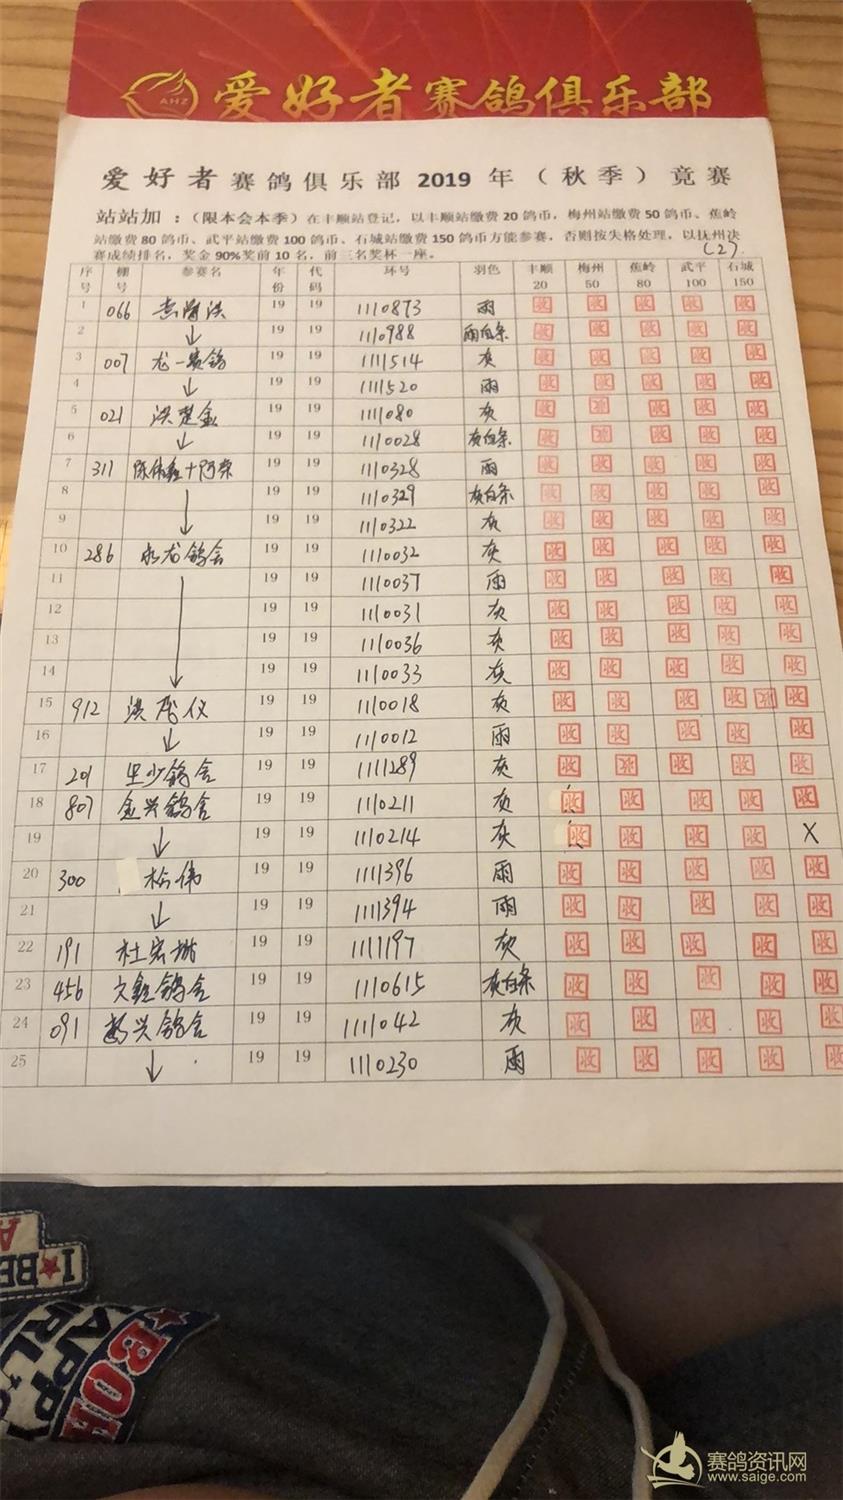 AHZ 爱好者赛鸽俱乐部
爱好者赛鸽俱乐部 2019 年（秋季）竞赛
站站加：（限本会本季）在丰顺站登记，以丰顺站缴费 20 鸽币，梅州站缴费 50 鸽币、蕉岭
站缴费 80 鸽币、武平站缴费 100 鸽币、石城站缴费 150 鸽币方能参赛，否则按失格处理，以抚州决
赛成绩排名，奖金 90%奖前 10 名，前三名奖杯一座。
(2)
序号 棚号 参赛名 年份 代码 环号 羽色 丰顺20 梅州50 蕉岭80 武平100 石城150
1 066 19 19 1110873 雨 收 收 收 收 收
2 ↓ 19 19 1110988 雨白条 收 收 收 收 收
3 007 龙一赛鸽 19 19 1111514 灰 收 收 收 收 收
4 ↓ 19 19 1111520 雨 收 收 收 收 收
5 021 洪楚金 19 19 1111080 灰 收 收 收 收 收
6 ↓ 19 19 1110028 灰白条 收 收 收 收 收
7 311 陈伟鑫+阿荣 19 19 1110328 雨 收 收 收 收 收
8 19 19 1110329 灰白条 收 收 收 收 收
9 ↓ 19 19 1110322 灰 收 收 收 收 收
10 286 永龙鸽舍 19 19 1110032 灰 收 收 收 收 收
11 19 19 1110037 雨 收 收 收 收 收
12 19 19 1110031 灰 收 收 收 收 收
13 19 19 1110036 灰 收 收 收 收 收
14 ↓ 19 19 1110033 灰 收 收 收 收 收
15 912 洪茂仪 19 19 1110018 灰 收 收 收 收 收 收
16 ↓ 19 19 1110012 雨 收 收 收 收 收
17 201 19 19 1111289 灰 收 收 收 收 收
18 807 金兴鸽舍 19 19 1110211 灰 收 收 收 收 收
19 ↓ 19 19 1110214 灰 收 收 收 收 X
20 300 松伟 19 19 1111396 雨 收 收 收 收 收
21 ↓ 19 19 1111394 雨 收 收 收 收 收
22 191 杜宏 19 19 1111197 灰 收 收 收 收 收
23 456 文鑫鸽舍 19 19 1110615 灰白条 收 收 收 收 收
24 091 兴鸽舍 19 19 1111042 灰 收 收 收 收 收
25 ↓ 19 19 1110230 雨 收 收 收 收 收
I★BE
A
BOR
APP
IRL
赛鸽资讯网
www.saige.com